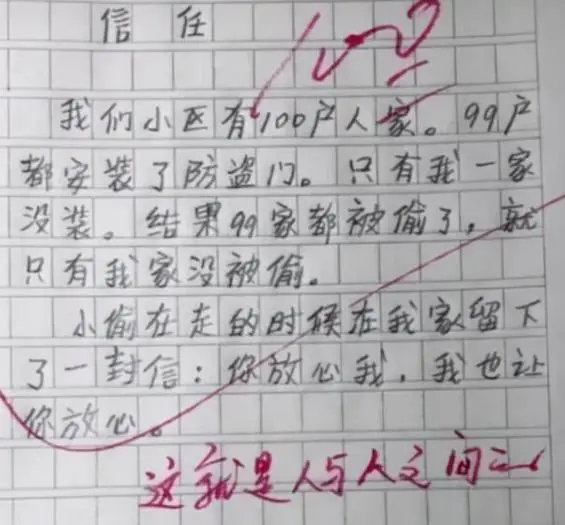 信任
我们小区有100户人家。99户
都安装了防盗门。只有我一家
没装。结果99家都被偷了，就
只有我家没被偷。
小偷在走的时候在我家留下
了一封信：你放心我，我也让
你放心。
这就是人与人之间